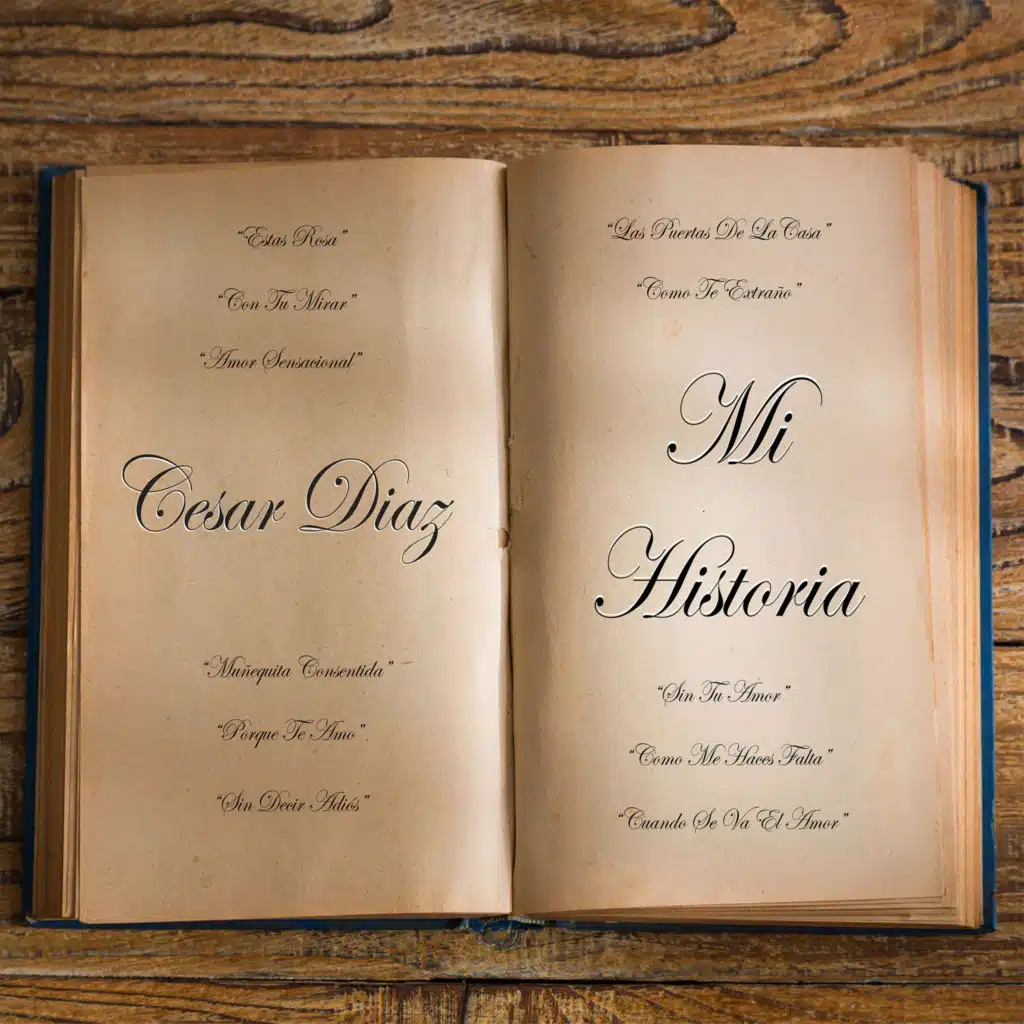 "Estas Rosa"
"Con Tu Mirar"
"Amor Sensacional"
Cesar Diaz
"Muñequita Consentida"
"Porque Te Amo".
"Sin Decir Adiós"
"Las Puertas De La Casa"
"Como Te Extraño"
Mi
Historia
"Sin Tu Amor"
"Como Me Haces Falta"
"Cuando Se Va El Amor"